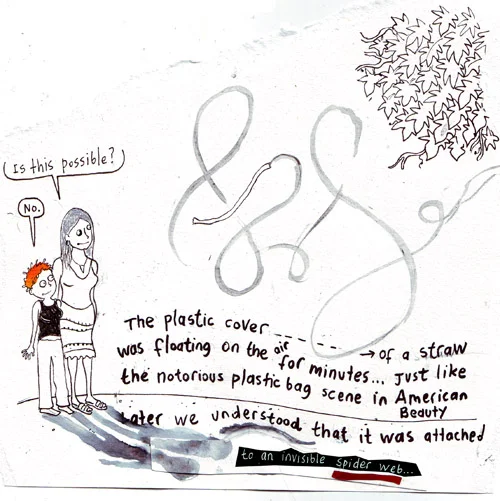 Is this possible?
No.
The plastic cover → of a straw
was floating on the air for minutes... just like
the notorious plastic bag scene in American
Beauty
Later we understood that it was attached
to an invisible spider web...